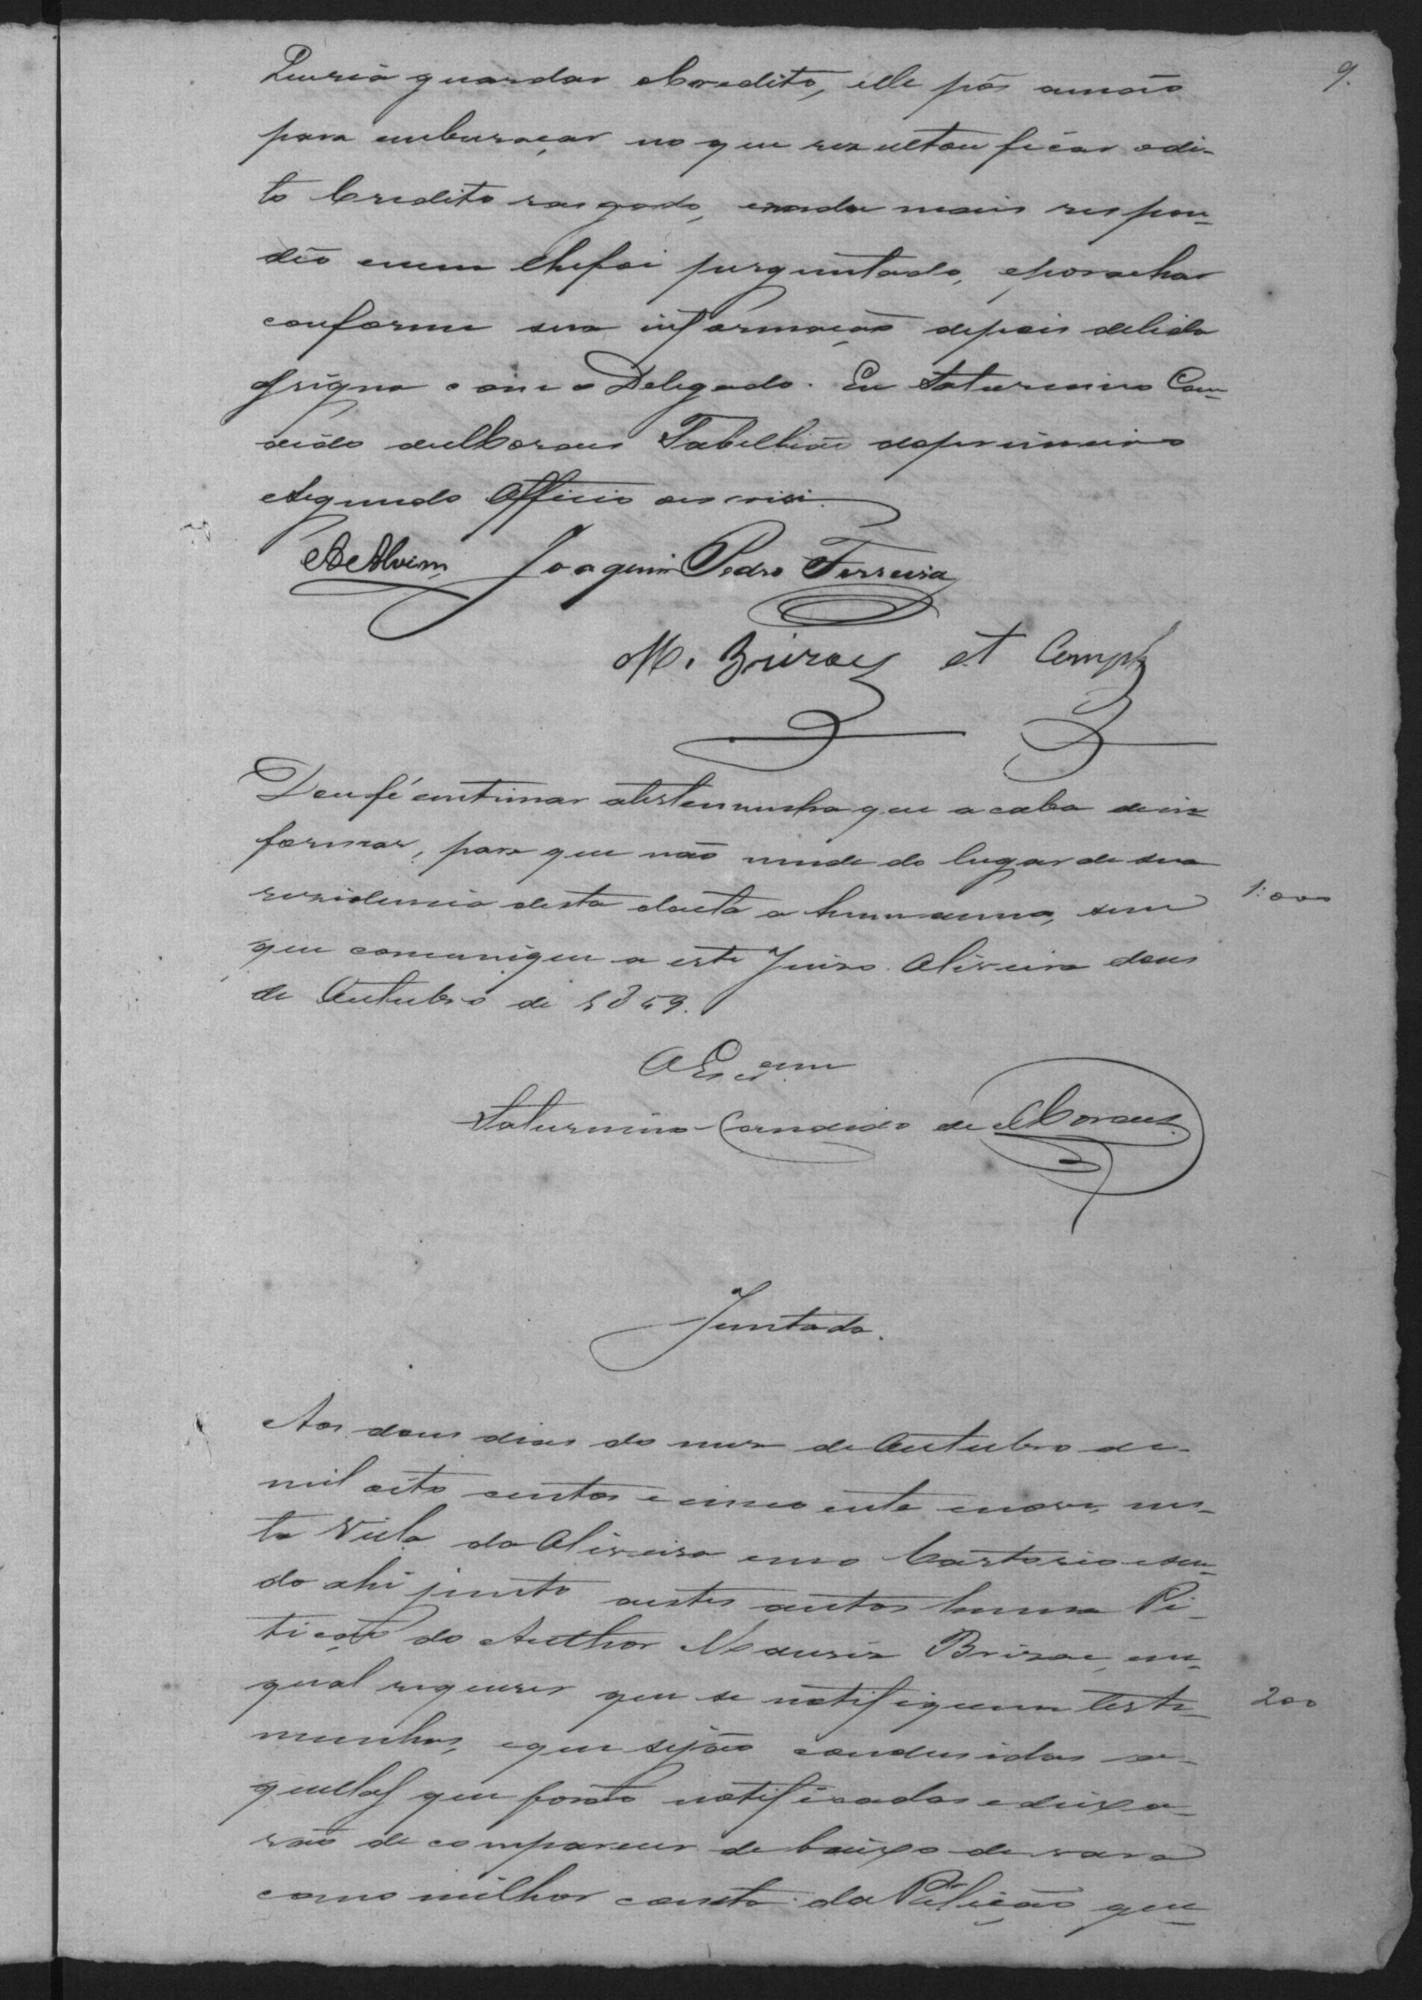 9.
queria guardar o Credito, elle pôs a mão
para embaraçar no que rezultou ficar o di-
to Credito rasgado, e nada mais respon-
deo e nem lhe foi perguntado, e por achar
conforme sua informação depois de lida
assigna com o Delegado. Eu Saturnino Can-
dido de Moraes Tabellião do primeiro
e Segundo Officio o escrivi.
Alvim Joaquim Pedro Ferreira
M. Brizac et Comp
Dou fé intimar a testemunha que acaba de in-
formar, para que não mude do lugar de sua
rezidencia desta data a hum anno, sem
que comunique a este Juizo. Oliveira dous
de Outubro de 1859.
1:000
O Escam
Saturnino Candido de Moraes
Juntada.
Aos dous dias do mez de Outubro de
mil oito centos e cincoenta e nove, nes-
ta Villa da Oliveira em o Cartorio e sen-
do ahi junto a estes autos huma Pe-
tição do Author Mauriz Brizac, em
qual requerer que se notifiquem teste-
munhas, e que sejão condusidas a-
quellas que forão notificadas e deixa-
rão de comparecer de baixo de vara
como milhor consta da Petição que
200